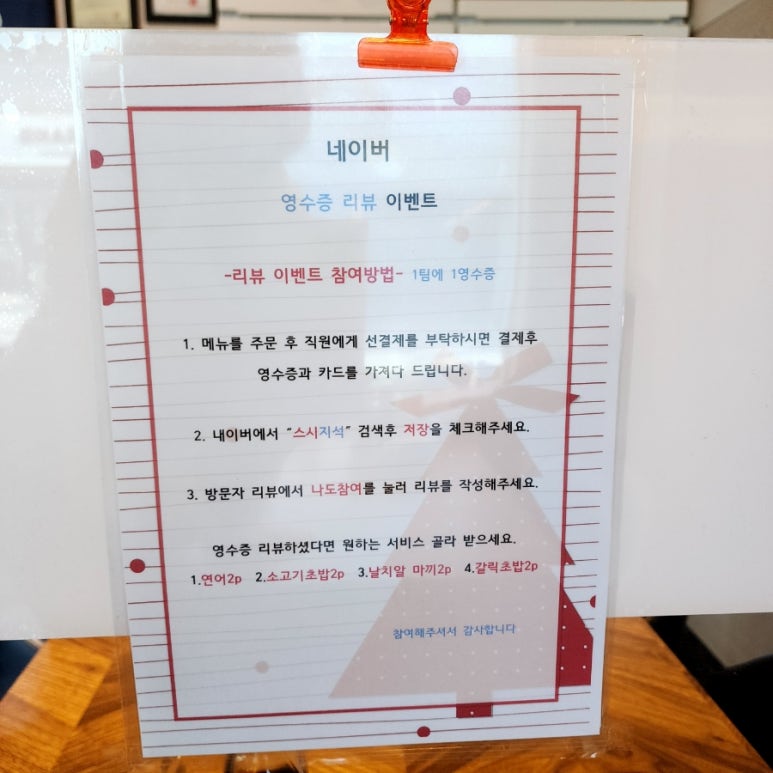 네이버
영수증 리뷰 이벤트
-리뷰 이벤트 참여방법- 1팀에 1영수증
1. 메뉴를 주문 후 직원에게 선결제를 부탁하시면 결제후
영수증과 카드를 가져다 드립니다.
2. 내이버에서 "스시지석" 검색후 저장을 체크해주세요.
3. 방문자 리뷰에서 나도참여를 눌러 리뷰를 작성해주세요.
영수증 리뷰하셨다면 원하는 서비스 골라 받으세요.
1.연어2p 2.소고기초밥2p 3.날치알 마끼2p 4.갈릭초밥2p
참여해주셔서 감사합니다